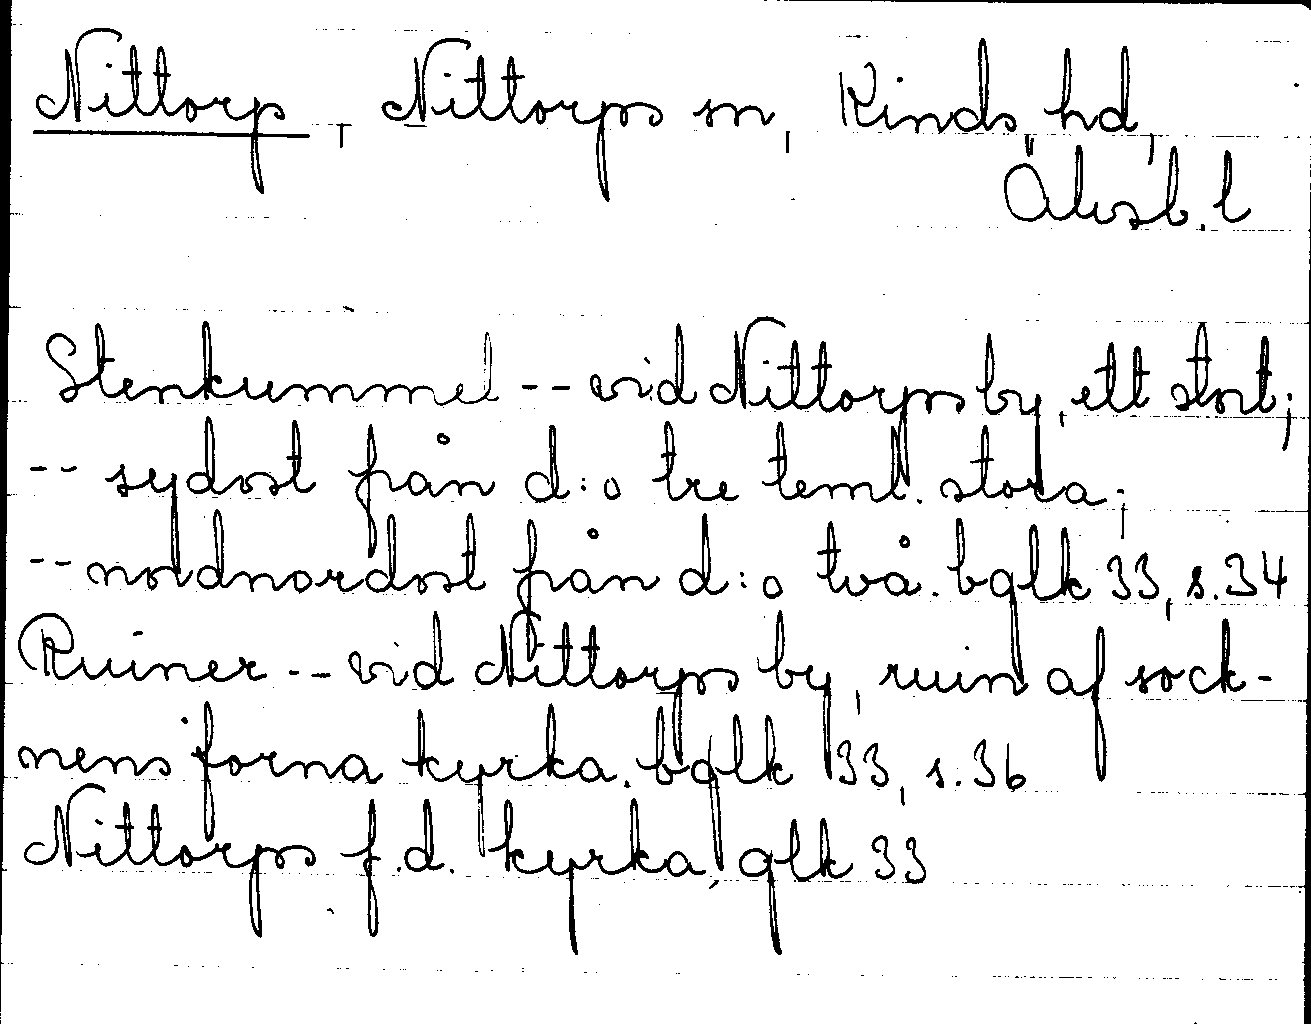 Nittorp, Nittorps sn, Kinds hd,
Älvsb. l
Stenkummel -- vid Nittorps by, ett stort;
-- sydost från d:o tre teml. stora;
-- nordnordost från d:o två. bglk 33, s. 34
Ruiner -- vid Nittorps by, ruin af sock-
nens forna kyrka. bglk 33, s. 36
Nittorps f.d. kyrka, glk 33